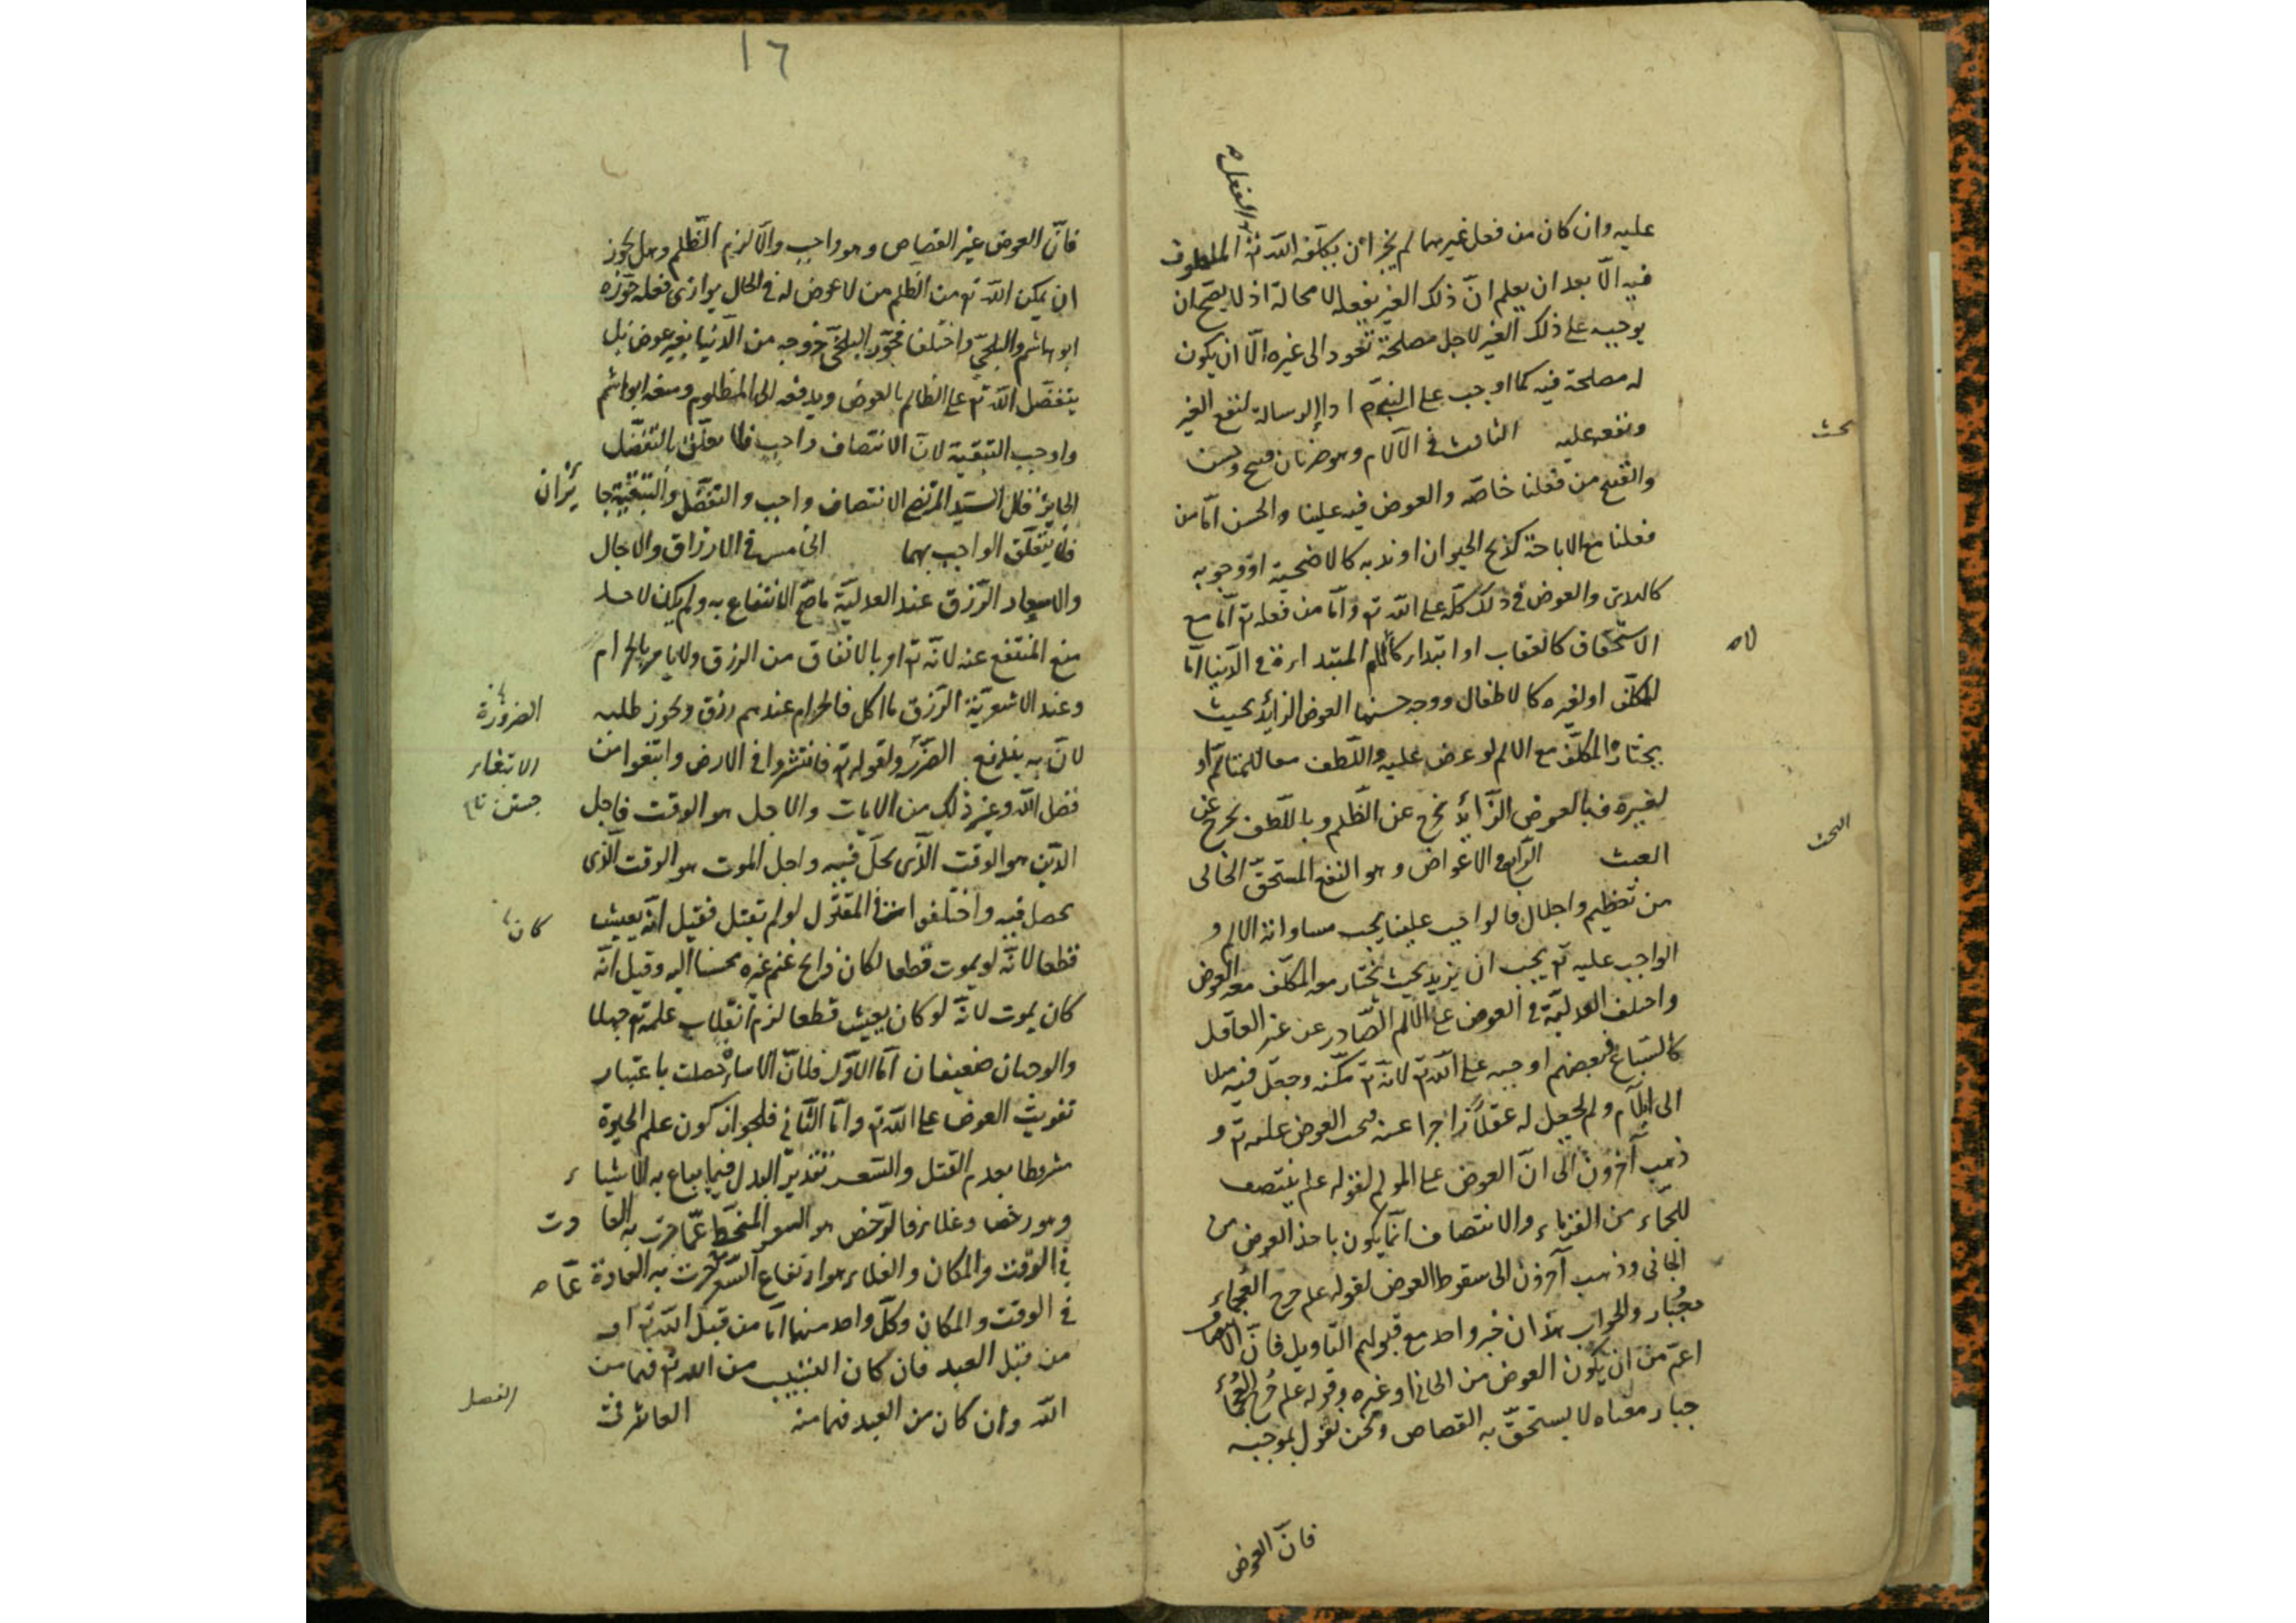 عليه وان كان من فعل غيرهما لم يجز ان يكلفه الله تع الملطوف
والفعل
فيه الّا بعد ان يعلم انّ ذلك الغير يفعله لا محالة اذ لا يصح ان
يوجبه على ذلك الغير لاجل مصلحة تعود الى غيره الّا ان يكون
له مصلحة فيه كما اوجب على النبيّ ص اداء الرسالة لنفع الغير
ونفعه عليه الثالث فى الآلام وهو ضربان قبيح وحسن
بحث
والقبيح من فعلنا خاصّه والعوض فيه علينا والحسن امّا من
فعلنا مع الاباحة كذبح الحيوان او ندبه كالاضحية او وجوبه
كالهدى والعوض فى ذلك كلّه على الله تع وامّا من فعله تع امّا مع
الاستحقاق كالعقاب او ابتداء كالالم المبتداءة فى الدّنيا امّا
للمكلّف او لغيره كالاطفال ووجه حسنها العوض الزائد بحيث
يختاره المكلّف مع الالم لو عرض عليه واللّطف معا للمتالّم او
لغيره فبالعوض الزّائد يخرج عن الظّلم وباللّطف يخرج عن
العبث الرّابع فى الاعواض وهو النفع المستحقّ الخالى
البحث
من تعظيم واجلال فالواجب علينا يجب مساواته الالم و
الواجب عليه تع يجب ان يزيد بحيث يختار معه المكلّف معه العوض
واختلف العدليّة فى العوض على الالم الصّادر عن غير العاقل
كالسّباع فبعضهم اوجبه على الله تع لانّه تع مكّنه وجعل فيه ميلا
الى ايلام ولم يجعل له عقلاً زاجرا عنه فيجب العوض عليه تع و
ذهب آخرون الى انّ العوض على المولم لقوله علم ينتصف
للجمّاء من القرناء والانتصاف انّما يكون باخذ العوض من
الجانى وذهب آخرون الى سقوط العوض لقوله علم جرح العجماء
جُبار والجواب هذان خبر واحد مع قبولهم التاويل فانّ الانتصاف
اعمّ من ان يكون العوض من الجانى او غيره وقوله علم جُرح العجماء
جبار معناه لا يستحقّ به القصاص ونحن نقول بموجبه
فانّ العوض
١٦
فانّ العوض غير القصاص وهو واجب والّا لزم الظّلم وهل يجوز
ان يمكن الله تع من الظّلم من لا عوض له فى الحال يوازى فعله جوّزه
ابو هاشم والبلخىّ واختلفا فجوّز البلخىّ خروجه من الدّنيا بغير عوض بل
يتفضّل الله تع على الظالم بالعوض ويدفعه الى المظلوم ومنعه ابو هاشم
واوجب التبقية لانّ الانتصاف واجب فلا يعلّق بالتفضّل
الجايز فقال السّيد المرتضى الانتصاف واجب والتفضّل والتبقية جايزان
فلا يتعلّق الواجب بهما الخامس فى الارزاق والآجال
والاسعار الرّزق عند العدليّة ما صحّ الانتفاع به ولم يكن لاحد
منع المنتفع عنه لانّه تع امر بالانفاق من الرزق ولا يامر بالحرام
وعند الاشعريّة الرّزق ما اكل فالحرام عندهم رزق ويجوز طلبه
الضرورة
لانّ به يندفع الضّرر ولقوله تع فانتشروا فى الارض وابتغوا من
الابتغاء
فضل الله وغير ذلك من الايات والاجل هو الوقت فاجل
جستن
الدّين هو الوقت الّذى يحلّ فيه واجل الموت هو الوقت الّذى
يحصل فيه واختلفوا فى المقتول لو لم يقتل فقيل انّه يعيش
كان
قطعا لانّه لو يموت قطعا لكان ذابح غنم غيره محسنا اليه وقيل انّه
كان يموت لانّه لو كان يعيش قطعا لزم انقلاب علمه تع جهلا
والوجهان ضعيفان امّا الاوّل فلانّ الاساءة حصلت باعتبار
تفويت العوض على الله تع وامّا الثّانى فلجواز كون علم الحيوة
مشروطا بعدم القتل والسّعر تقدير البدل فيما يباع به الاشياء
وهو رخص وغلاء فالرّخص هو السعر المنحطّ عمّا جرت به العادت
فى الوقت والمكان والغلاء هو ارتفاع السّعر جرت به العادة عمّا
فى الوقت والمكان وكلّ واحد منهما امّا من قبل الله تع او
من قبل العبد فان كان السّبب من الله تع فهما من
الله وان كان من العبد فهما منه العاشر فى
الفصل